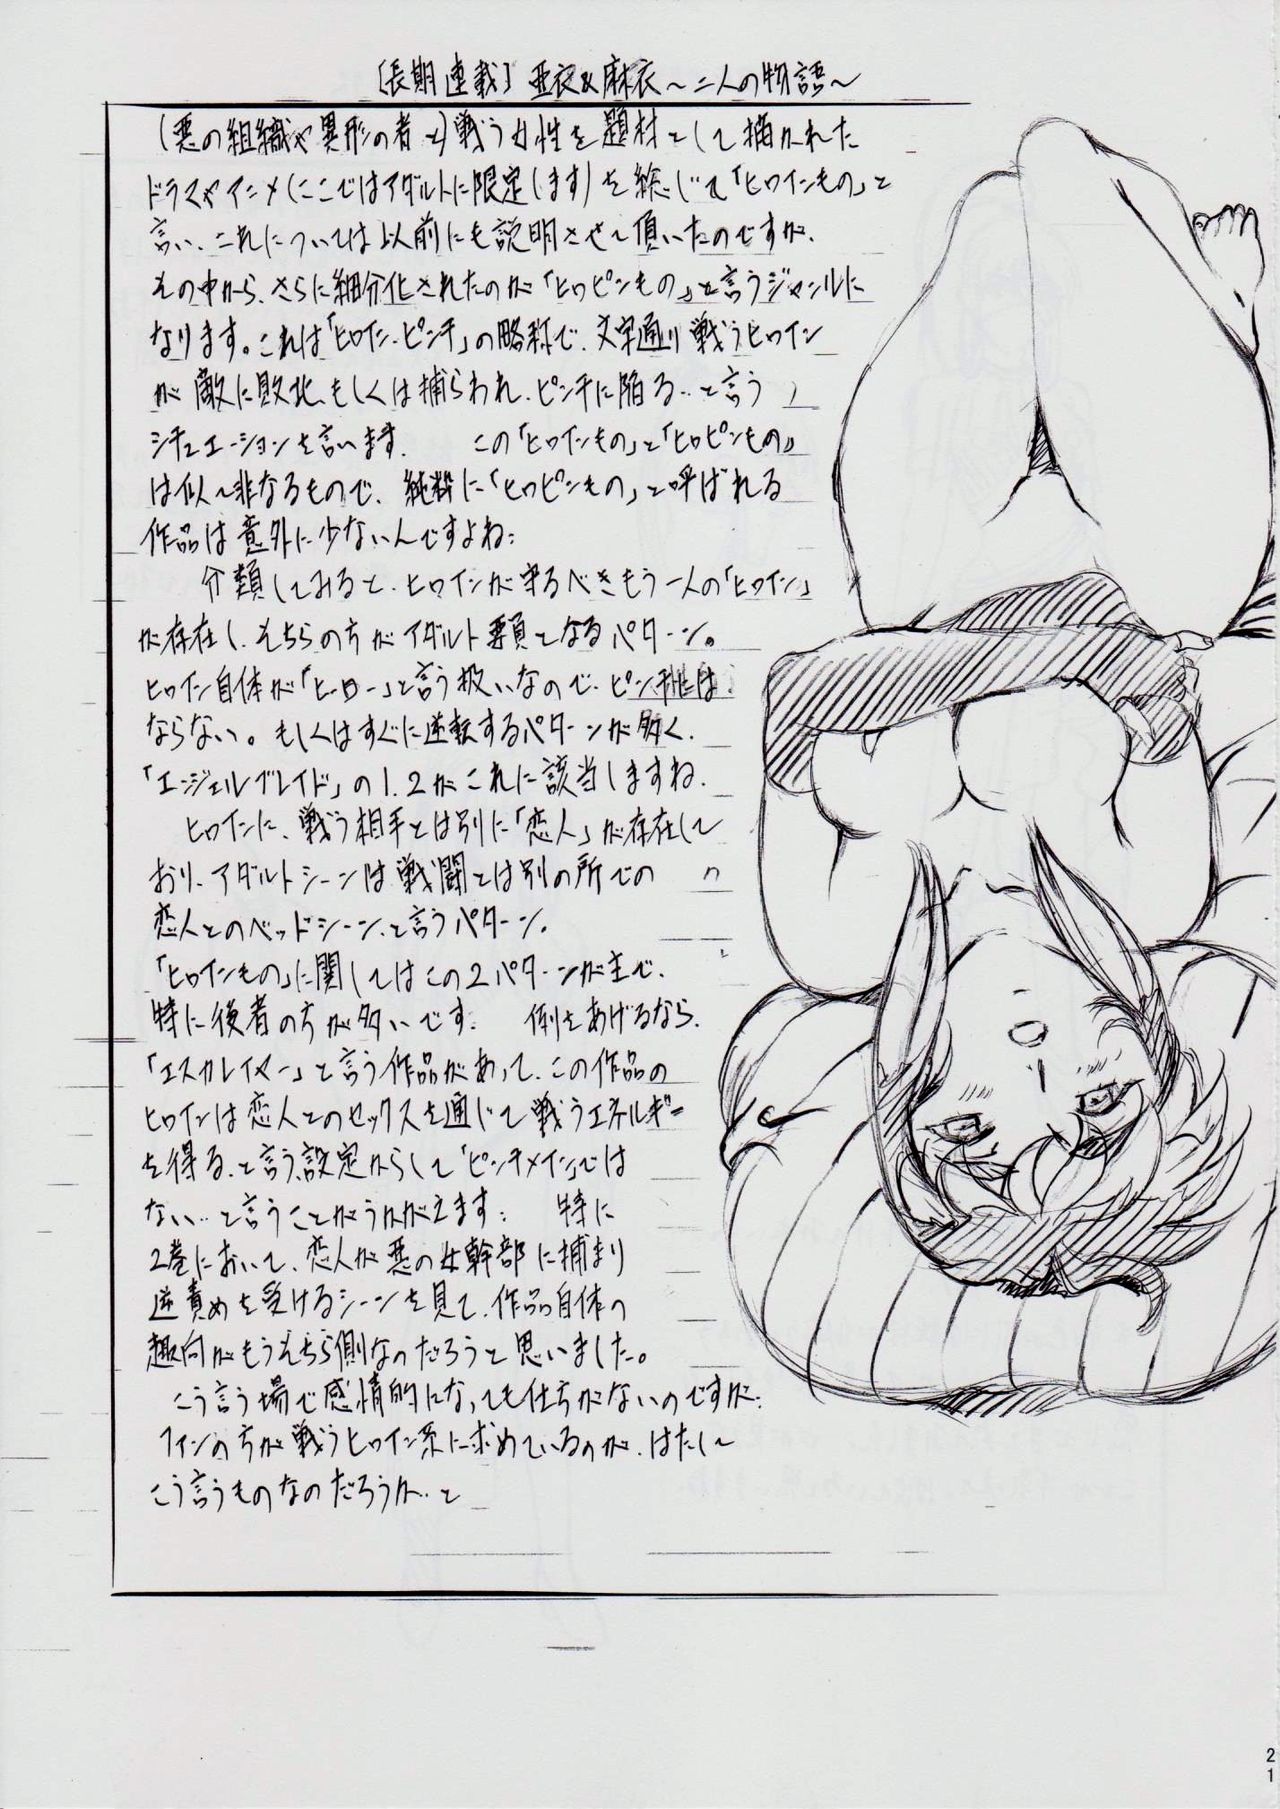 [長期連載] 亜衣&麻衣〜二人の物語〜
(悪の組織や異形の者と)戦う女性を題材として描かれた
ドラマやアニメ(ここではアダルトに限定します)を総じて「ヒロインもの」と
言い、これについては以前にも説明させて頂いたのですが、
その中から、さらに細分化されたのが「ヒロピンもの」と言うジャンルに
なります。これは「ヒロイン・ピンチ」の略称で、文字通り戦うヒロイン
が敵に敗北、もしくは捕らわれ、ピンチに陥る…と言う
シチュエーションを言います。 この「ヒロインもの」と「ヒロピンもの」
は似て非なるもので、純粋に「ヒロピンもの」と呼ばれる
作品は意外に少ないんですよね;
分類してみると、ヒロインが守るべきもう一人の「ヒロイン」
が存在し、そちらの方がアダルト要員となるパターン。
ヒロイン自体が「ヒーロー」と言う扱いなので、ピンチには
ならない。もしくはすぐに逆転するパターンが多く、
「エンジェルブレイド」の1.2がこれに該当しますね.
ヒロインに、戦う相手とは別に「恋人」が存在して
おり、アダルトシーンは戦闘とは別の所での
恋人とのベッドシーン、と言うパターン。
「ヒロインもの」に関してはこの2パターンが主で、
特に後者の方が多いです; 例をあげるなら、
「エスカレイヤー」と言う作品があって、この作品の
ヒロインは恋人とのセックスを通じて戦うエネルギー
を得る、と言う設定からして「ピンチメイン」では
ない…と言うことがうかがえます; 特に
2巻において、恋人が悪の女幹部に捕まり
逆責めを受けるシーンを見て、作品自体の
趣向がもうそちら側なのだろうと思いました。
こう言う場で感情的になっても仕方がないのですが;
ファンの方が戦うヒロイン系に求めているのが、はたして
こう言うものなのだろうか…と
21